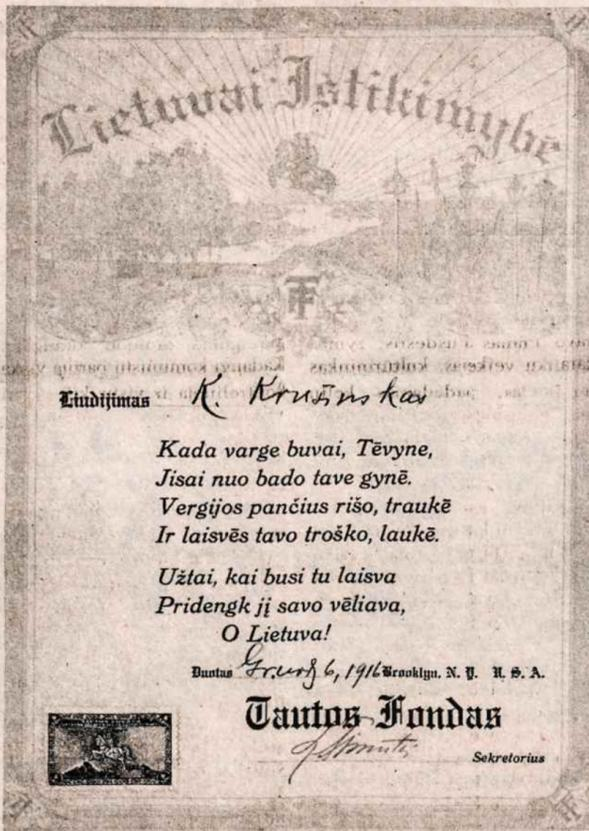 Lietuvai Ištikimybė
TF
Liudijimas K. Krušinskas
Kada varge buvai, Tėvyne,
Jisai nuo bado tave gynė.
Vergijos pančius rišo, traukė
Ir laisvės tavo troško, laukė.
Užtai, kai busi tu laisva
Pridengk jį savo vėliava,
O Lietuva!
Duotas 6, 1916 Brooklyn, N. Y. U. S. A.
Tautos Fondas
Sekretorius